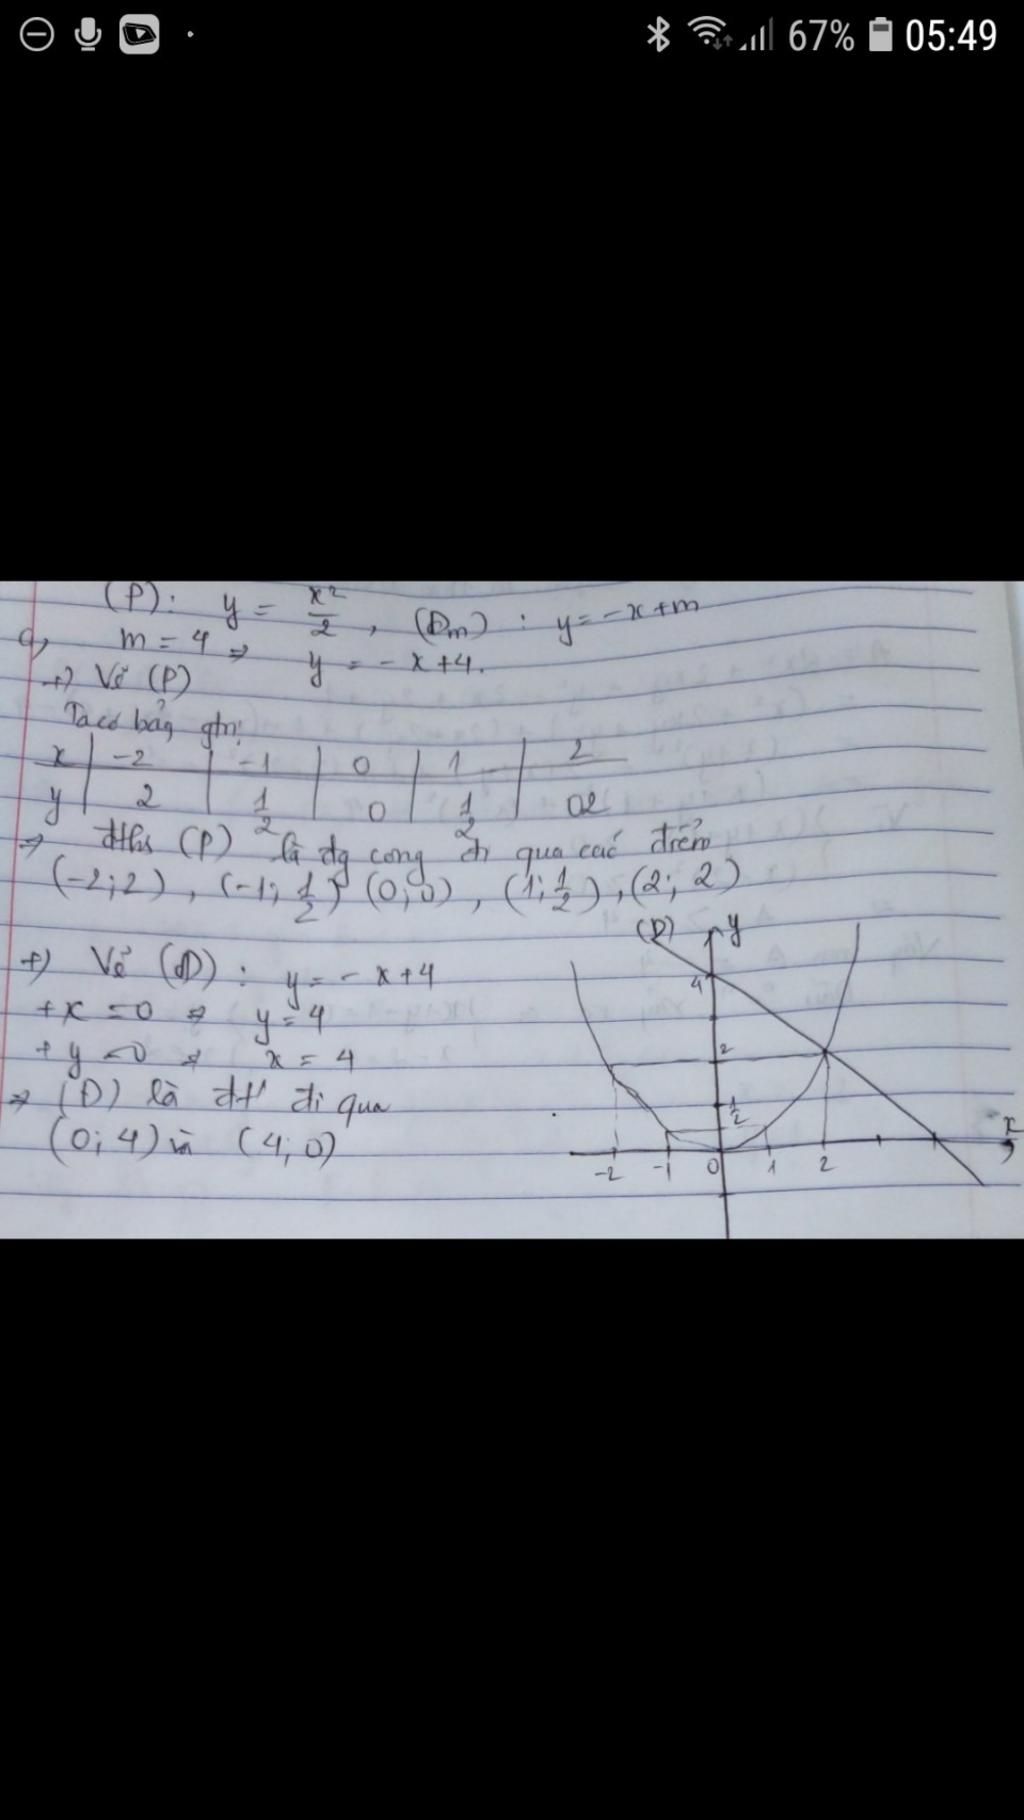 67% 05:49
(P): y = x²/2 , (Dm) : y = -x+m
a, m = 4 => y = -x+4.
+) Vẽ (P)
Ta có bảng gtri
x | -2 | -1 | 0 | 1 | 2
y | 2 | 1/2 | 0 | 1/2 | 2
=> đths (P) là đg cong đi qua các điểm
(-2;2), (-1; 1/2) (0;0), (1; 1/2), (2; 2)
+) Vẽ (D): y = -x+4
+ x = 0 => y = 4
+ y = 0 => x = 4
=> (D) là đt' đi qua
(0; 4) và (4; 0)
(D) y
4
2
1/2
x
-2 -1 0 1 2